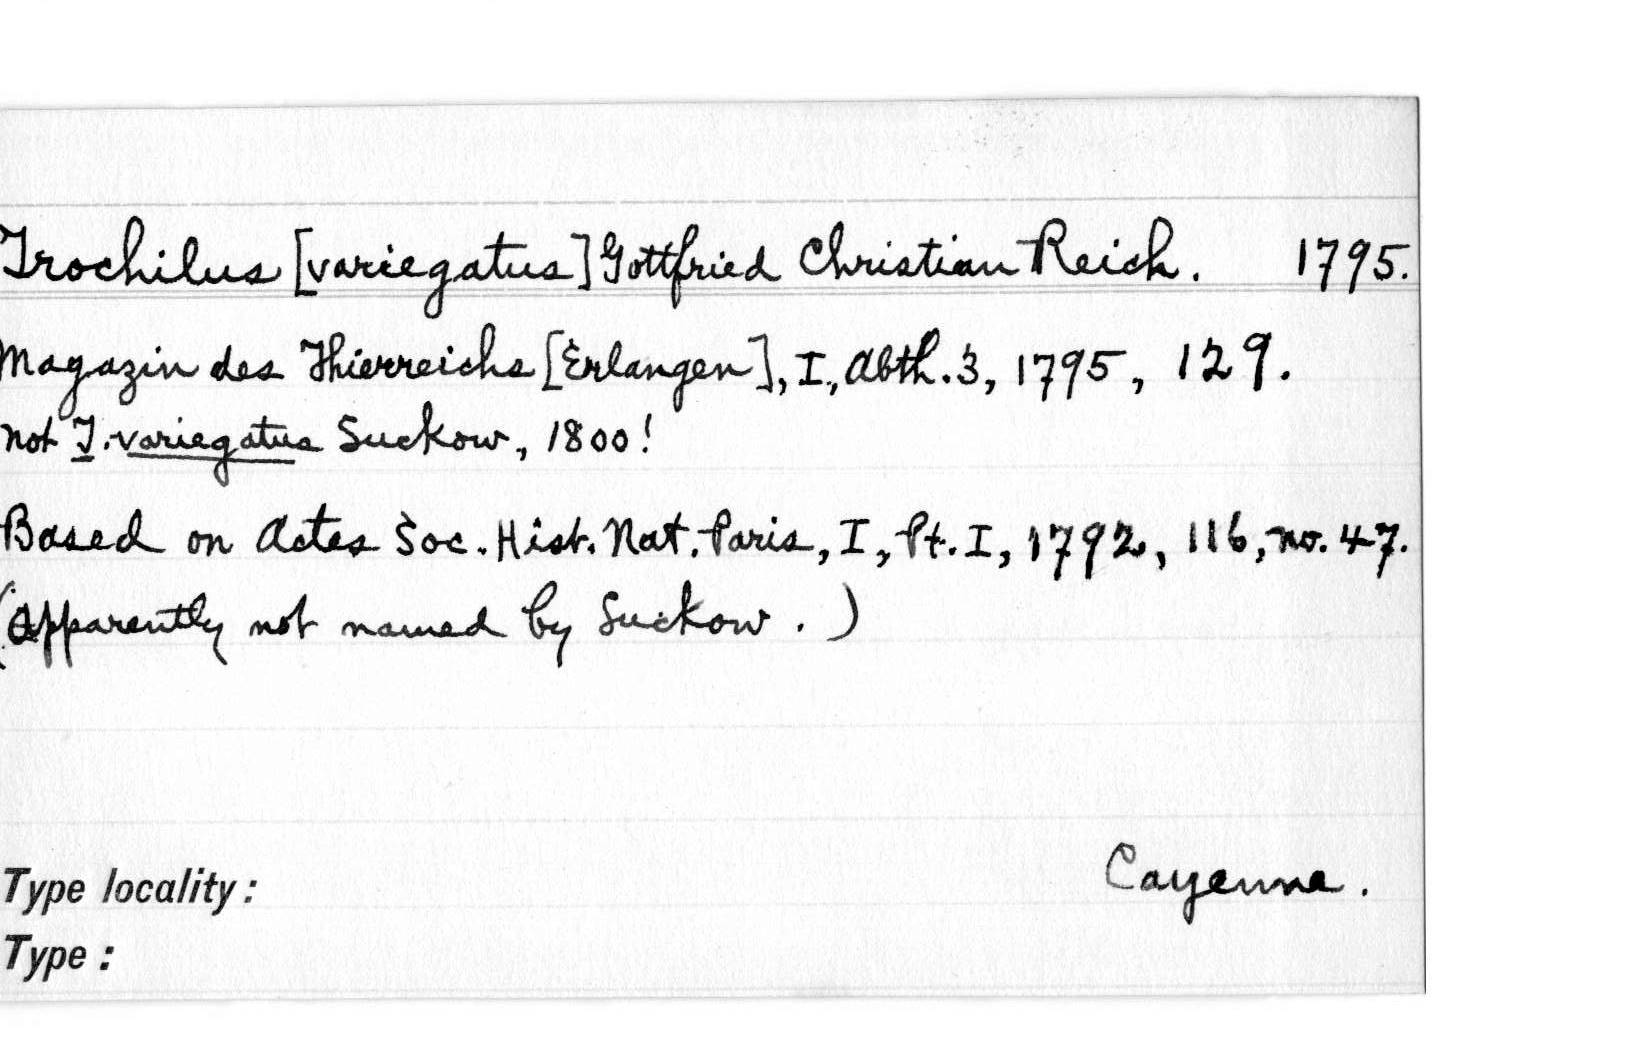 Trochilus [variegatus] Gottfried Christian Reich. 1795.
Magazin des Thierreichs [Erlangen], I, Abth. 3, 1795, 129.
not T. variegatus Suckow, 1800!
Based on Actes Soc. Hist. Nat. Paris, I, Pt. I, 1792, 116, no. 47.
(Apparently not named by Suckow.)
Type locality: Cayenne.
Type: